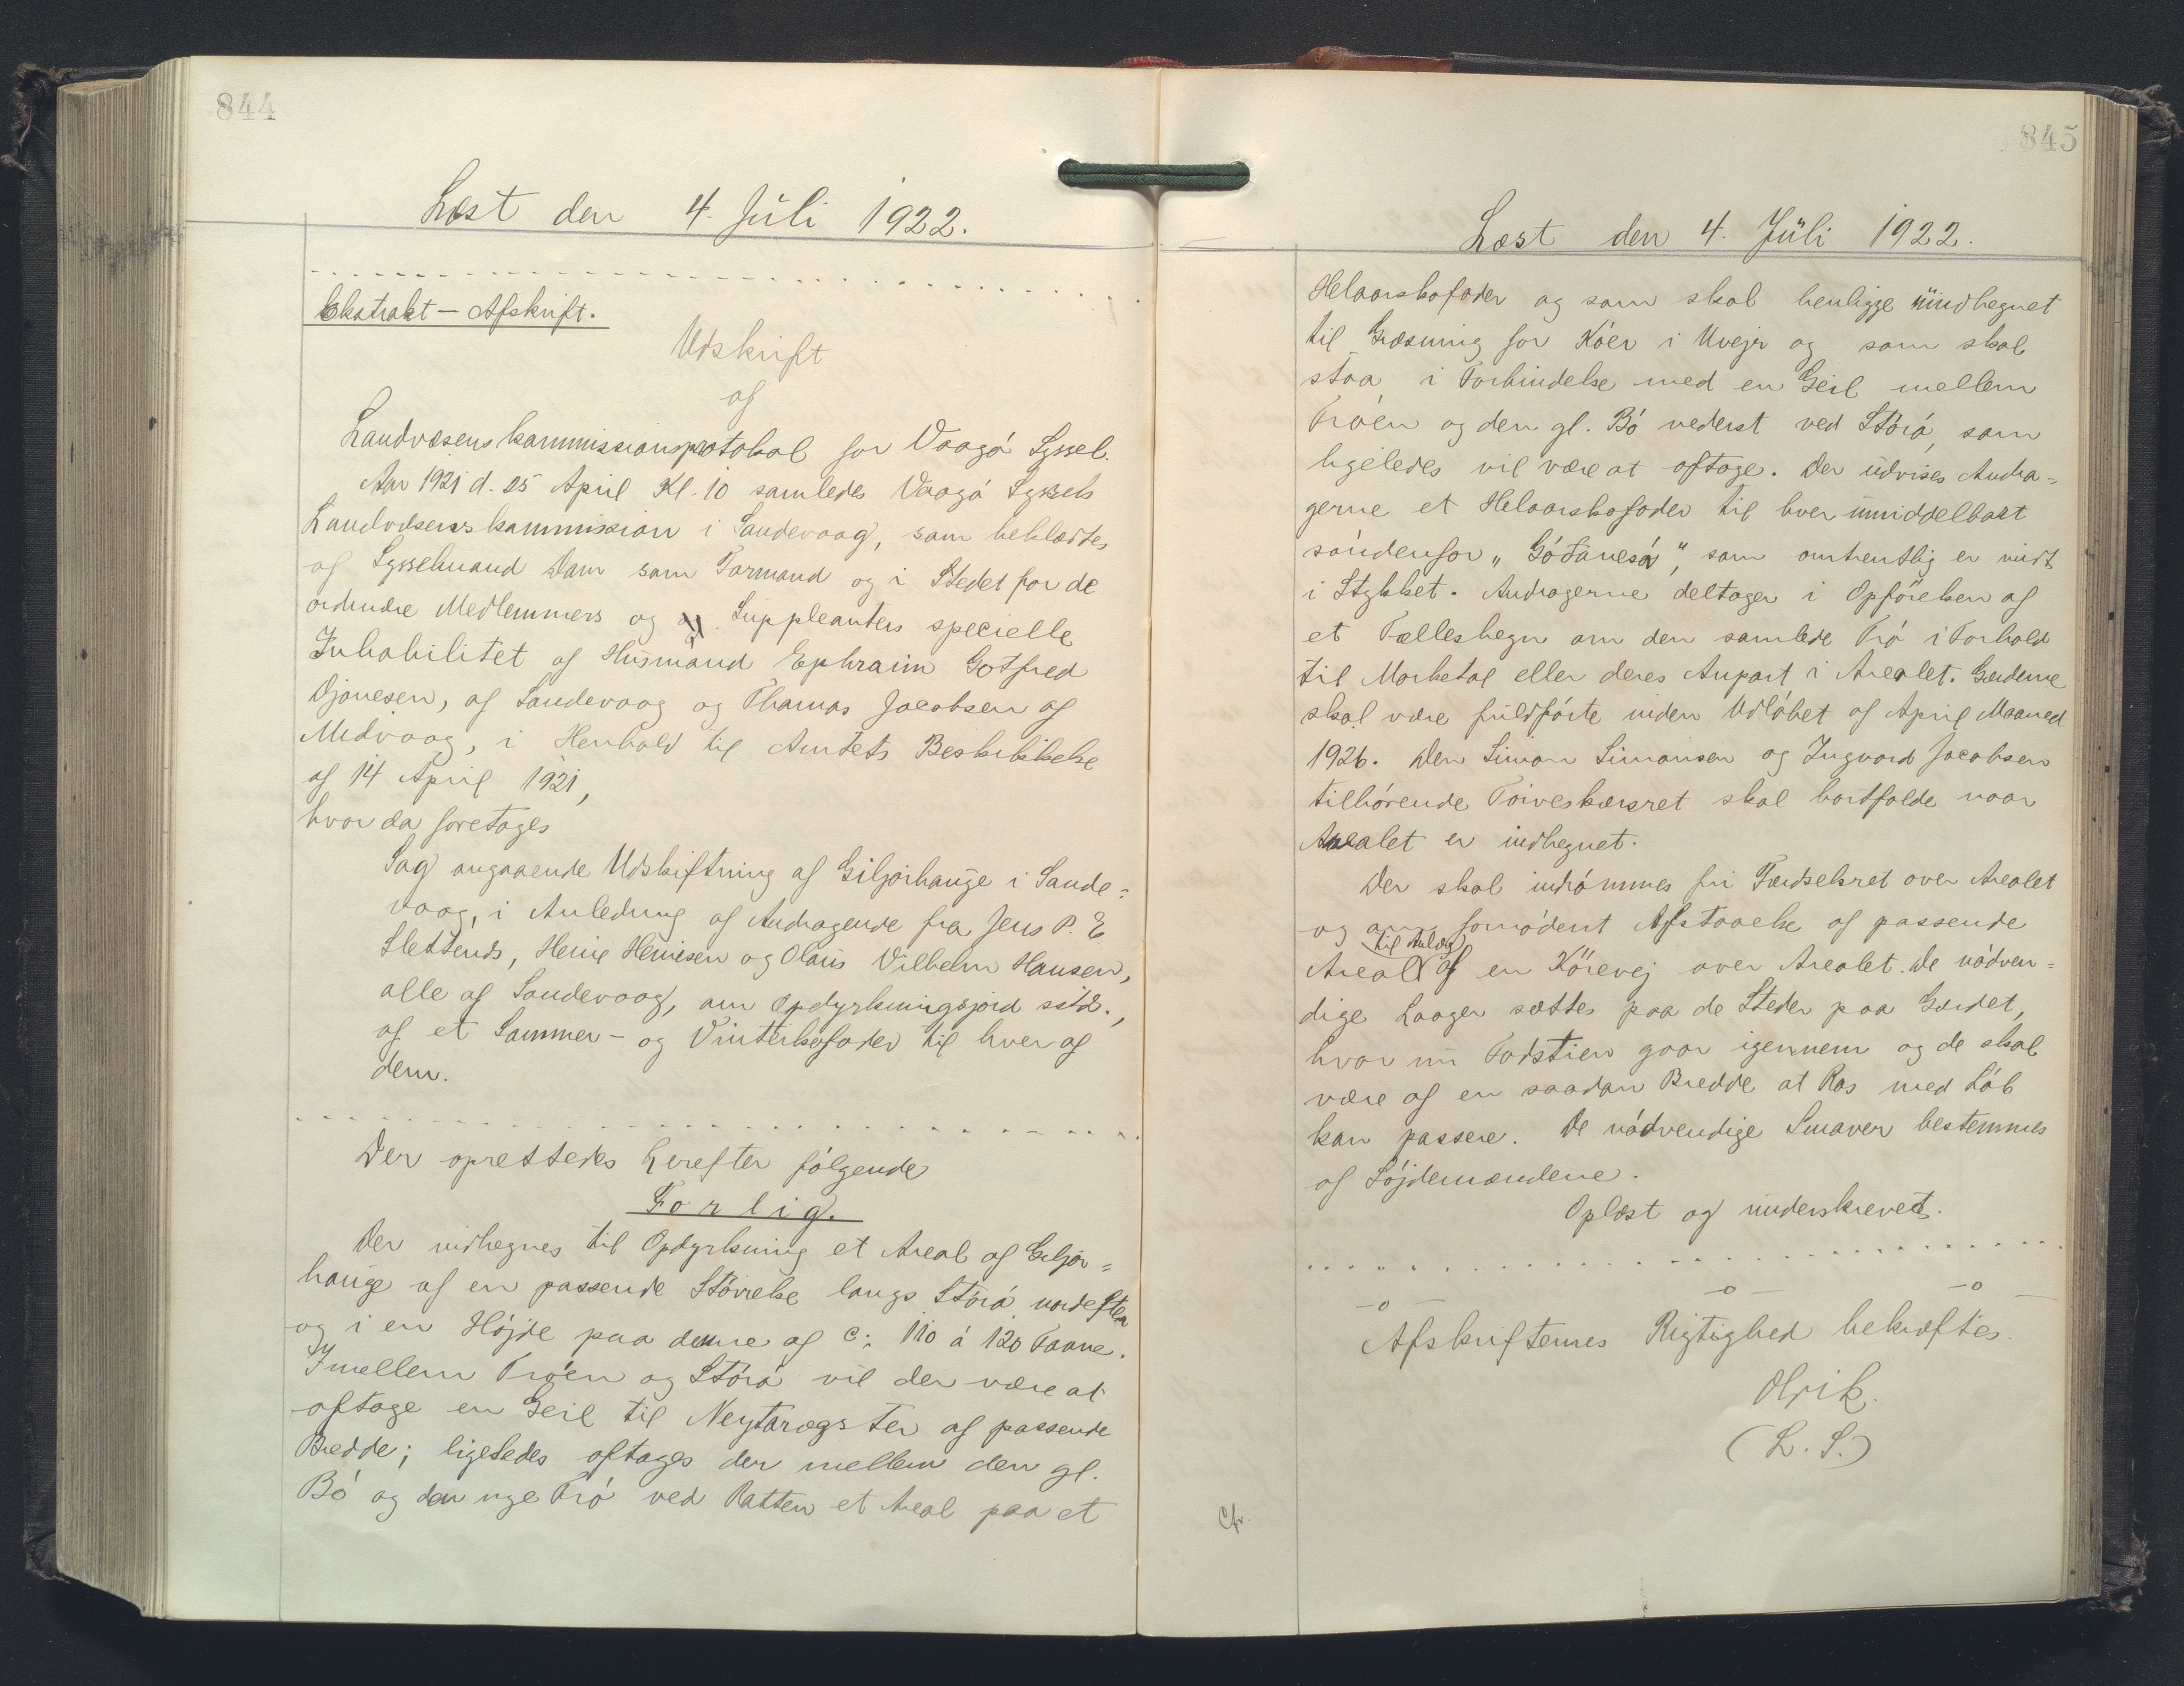 844
Læst den 4. Juli 1922.
Ekstrakt - Afskrift.
Udskrift
af
Landvæsenskommissionsprotokol for Vaagø Syssel.
Aar 1921 d. 25 April Kl. 10 samledes Vaagø Syssels
Landvæsenskommission i Sandevaag, som beklædtes
af Sysselmand Dam som Formand og i Stedet for de
ordinære Medlemmers og Suppleanters specielle
Inhabilitet af Husmand Ephraim Gotfred
Djonesen, af Sandevaag og Thomas Jacobsen af
Midvaag, i Henhold til Amtets Beskikkelse
af 14 April 1921,
hvor da foretages
Sag angaaende Udskiftning af Giljarhauge i Sande=
vaag, i Anledning af Andragende fra Jens P. E
Slettends, Heine Heinesen og Olaus Vilhelm Hansen,
alle af Sandevaag, om Opdyrkningsjord
af et Sommer- og Vinterkofoder til hver af
dem.
Der oprettedes herefter følgende
Forlig.
Der indhegnes til Opdyrkning et Areal af Giljar=
hauge af en passende Størrelse langs Stórá nordefter
og i en Højde paa denne af c: 110 á 120 Favne.
Imellem Trøen og Stórá vil der være at
aftage en Geil til Neytarægster af passende
Bredde; ligeledes aftages der mellem den gl.
Bø og den nye Trø ved Ratten et Areal paa et
845
Læst den 4. Juli 1922.
Helaarskofoder og som skal henligge uindhegnet
til Græsning for Køer i Uvejr og som skal
staa i Forbindelse med en Geil mellem
Trøen og den gl. Bø nederst ved Stórá, som
ligeledes vil være at aftage. Der udvises Andra=
gerne et Helaarskofoder til hver umiddelbart
søndenfor „Góðanesá", som omtrentlig er midt
i Stykket. Andragerne deltager i Opførelsen af
et Fælleshegn om den samlede Trø i Forhold
til Marketal eller deres Anpart i Arealet. Gærderne
skal være fuldførte inden Udløbet af April Maaned
1926. Den Simon Simonsen og Ingvard Jacobsen
tilhørende Tørveskærsret skal bortfalde naar
Arealet er indhegnet.
Der skal indrømmes fri Færdselsret over Arealet
og om fornødent Afstaaelse af passende
til Anlæg
Areal af en Kørevej over Arealet. De nødven=
dige Laager sættes paa de Steder paa Gærdet,
hvor nu Fodstien gaar igennem og de skal
være af en saadan Bredde at Ros med Løb
kan passere. De nødvendige Smaver bestemmes
af Løjdemændene.
Oplæst og underskrevet.
-o- -o- -o-
Afskrifternes Rigtighed bekræftes.
Olrik.
(L. S.)
Cfr.